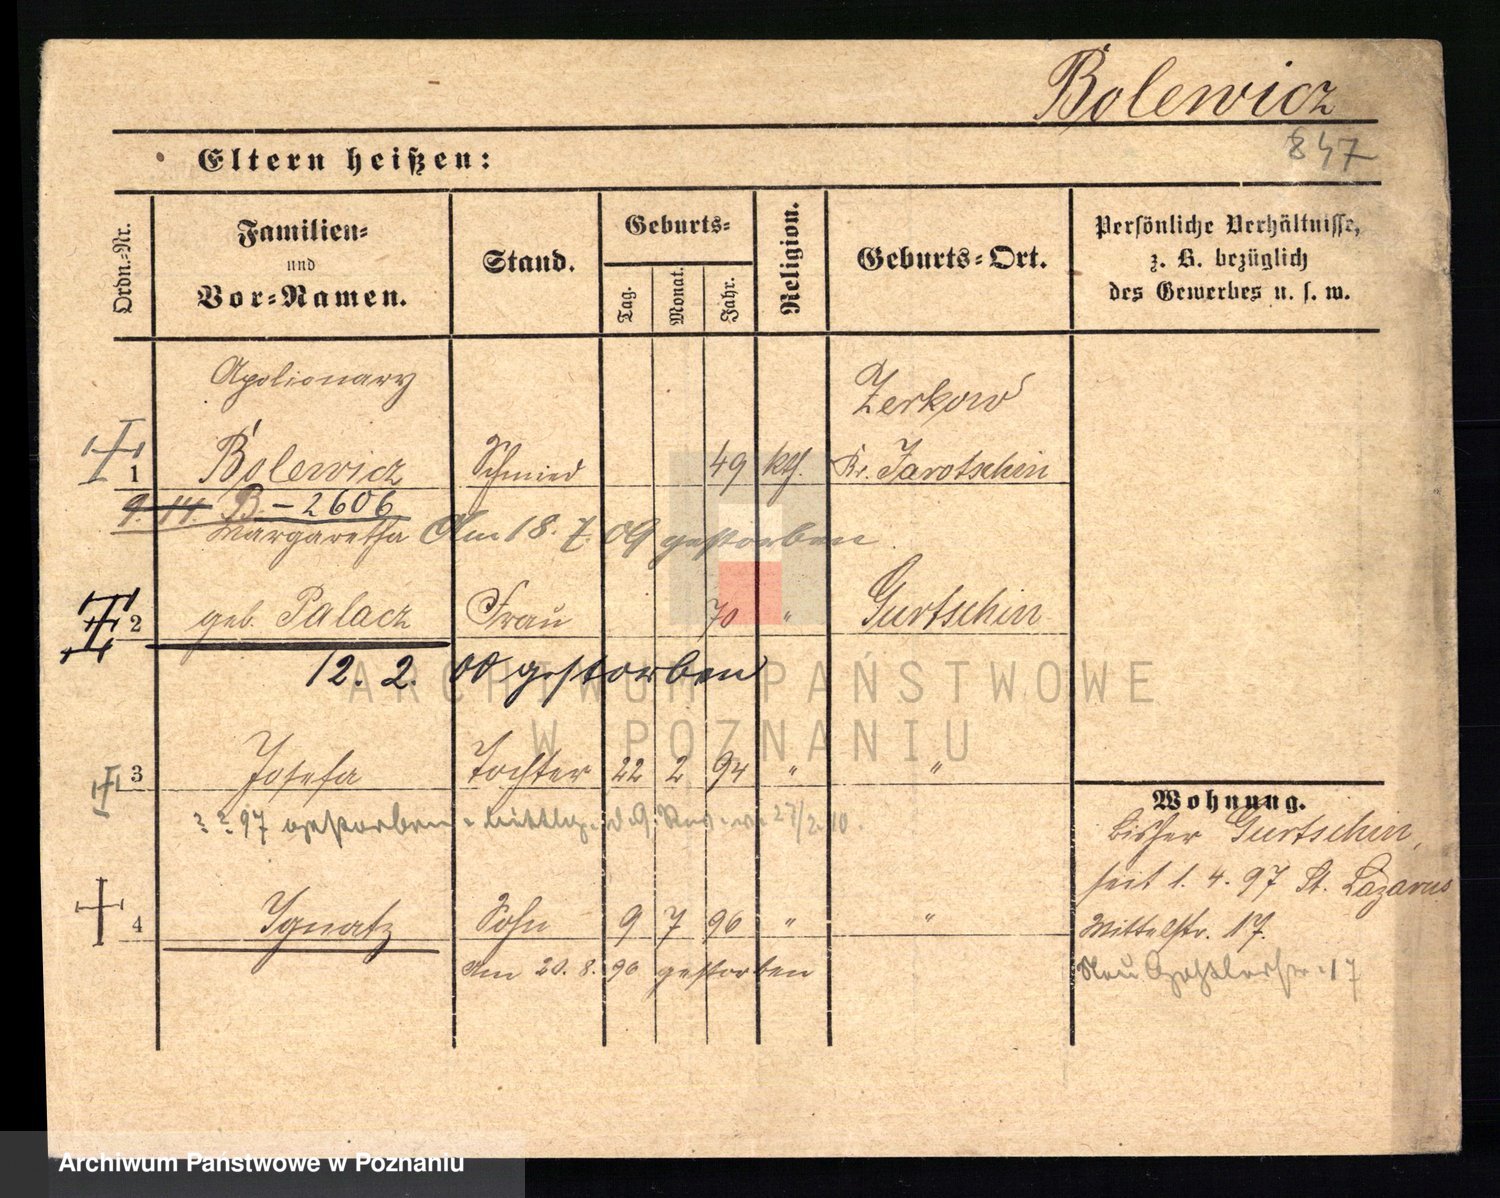 Bolewicz
847
Eltern heißen:
Ordn.-Nr.
Familien-
und
Vor-Namen.
Stand.
Geburts-
Tag.
Monat.
Jahr.
Religion.
Geburts-Ort.
Persönliche Verhältnisse,
z. B. bezüglich
des Gewerbes u. s. w.
Apolionary
Zerkow
1 Bolewicz Schmied 49 kth. Kr. Jarotschin
9. 14. B. - 2606
Margaretha Am 18. 7. 09 gestorben
2 geb. Palacz Frau 70 " Gurtschin
12. 2. 00 gestorben
3 Josefa Tochter 22 2 94 " "
? ? 97 gestorben 27/2. 10.
4 Ignatz Sohn 9 7 96 " "
Am 20. 8. 96 gestorben
Wohnung.
bisher Gurtschin,
seit 1. 4. 97 St. Lazarus
Mittelstr. 17.
Neu 17
ARCHIWUM PAŃSTWOWE
W POZNANIU
Archiwum Państwowe w Poznaniu